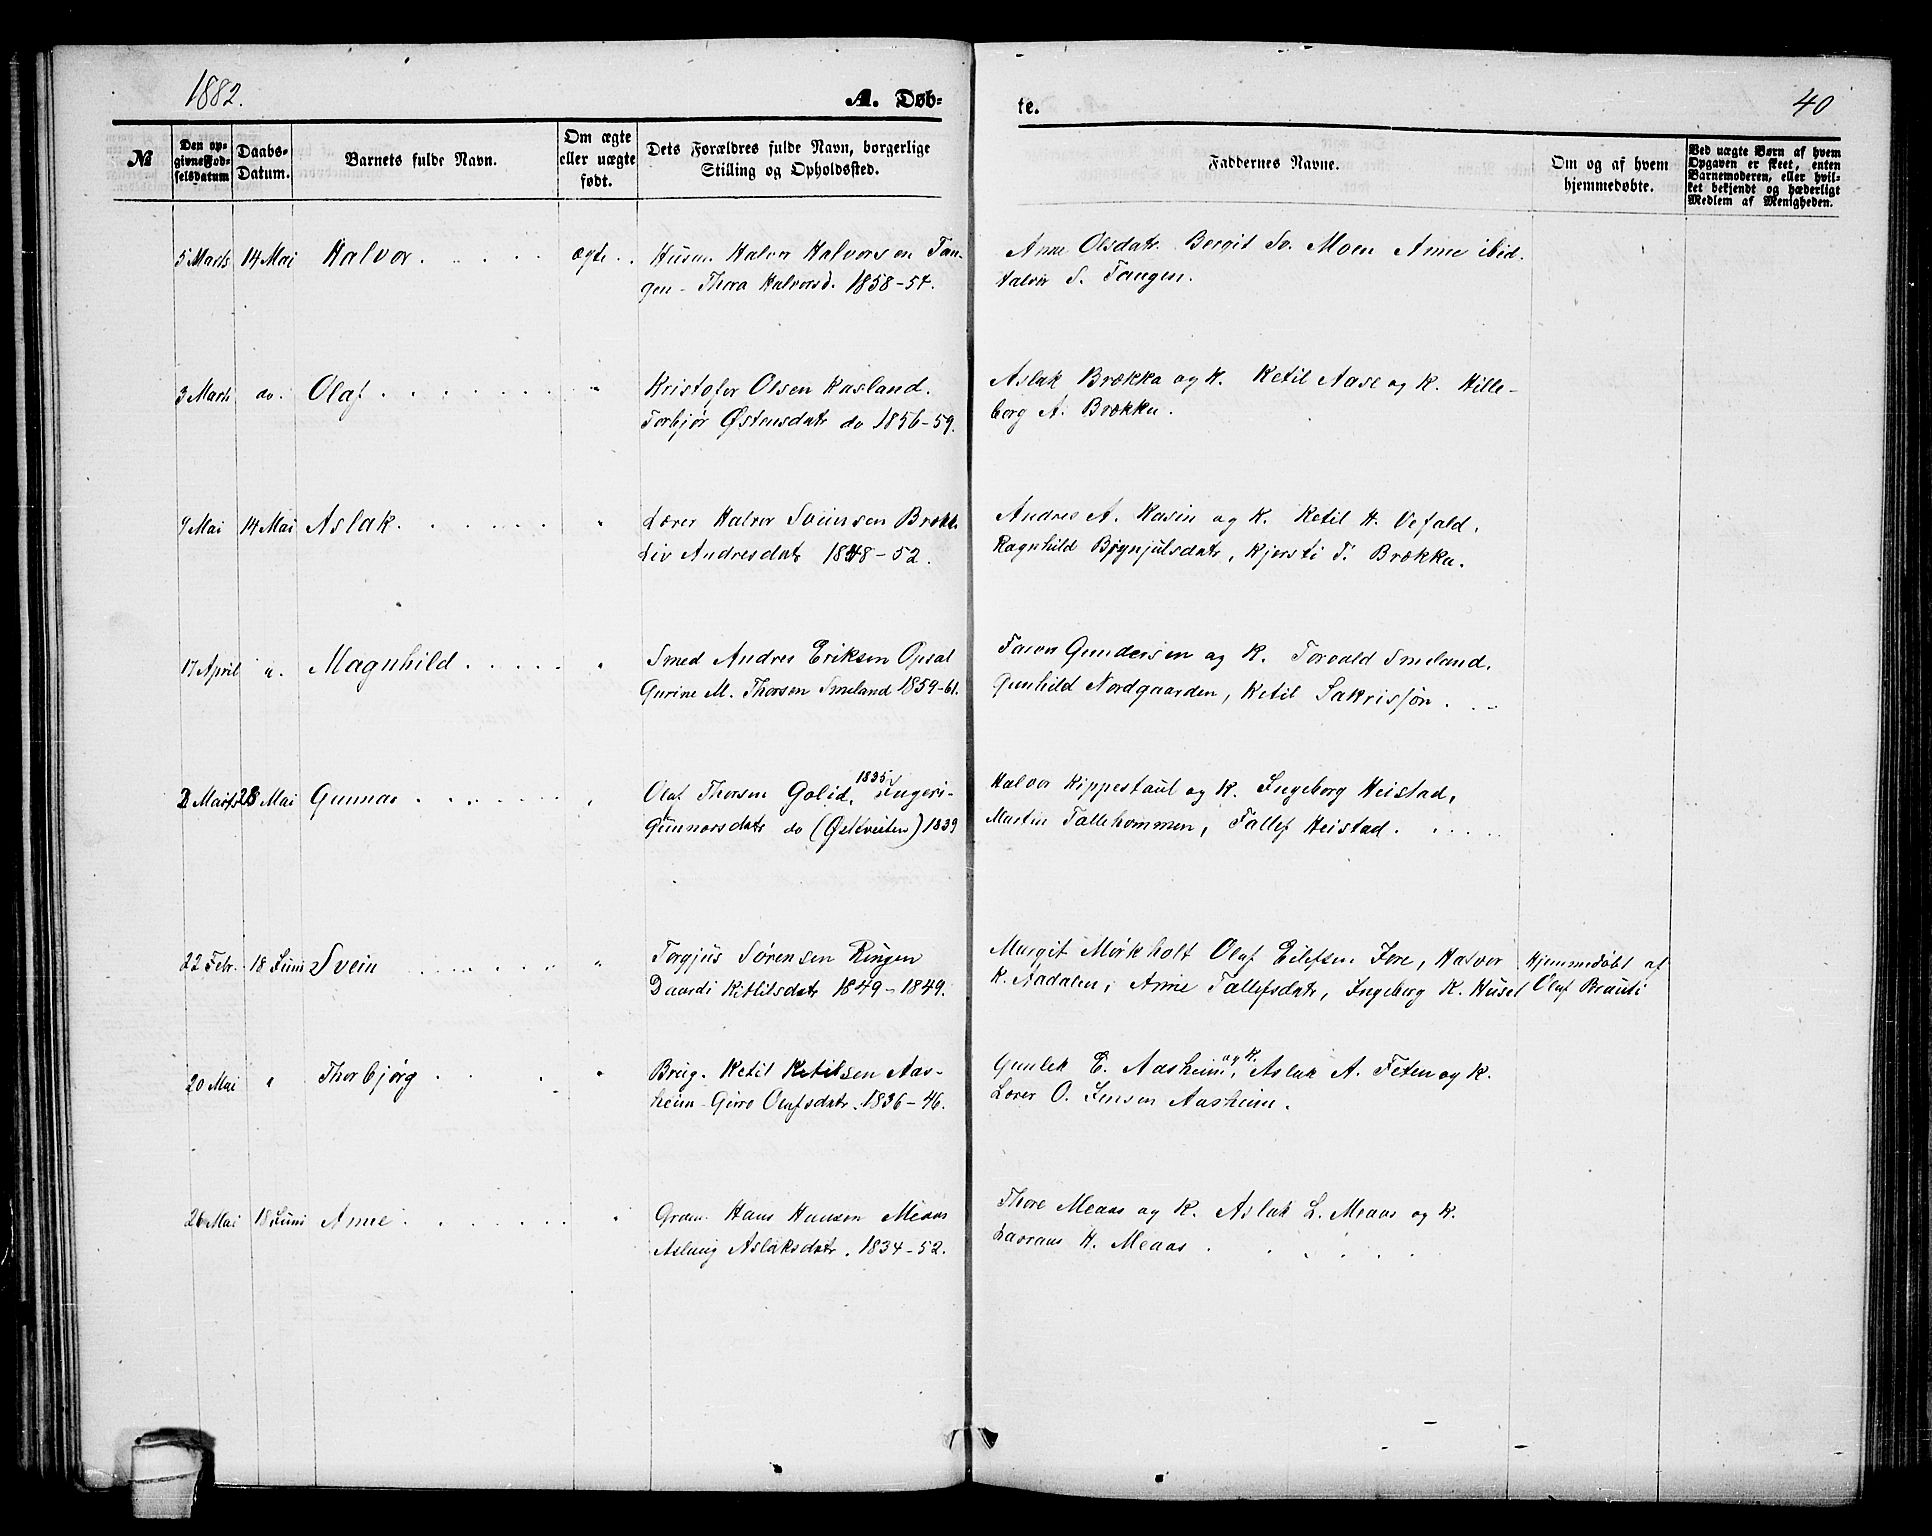 1882.
A. Døb-
te.
40
№
Den op-
givne Fød-
selsdatum
Daabs-
Datum.
Barnets fulde Navn.
Om ægte
eller uægte
født.
Dets Forældres fulde Navn, borgerlige
Stilling og Opholdssted.
Faddernes Navne.
Om og af hvem
hjemmedøbte.
Ved uægte Børn af hvem
Opgaven er skeet, enten
Barnemoderen, eller hvil-
ket bekjendt og hæderligt
Medlem af Menigheden.
5 Marts 14 Mai Halvor. ægte. Husm. Halvor Halvorsen Tan-
gen - Thora Halvorsd. 1858-54.
Anne Olsdatr. Bergit Sv. Moen Anne ibid.
Halvor S. Tangen.
3 Marts do. Olaf " Kristofer Olsen Kasland.
Torbjør Østensdatr do 1856-59.
Aslak Brækka og K. Ketil Aase og K. Hille-
borg A. Brækka.
9 Mai 14 Mai Aslak. " Lærer Halvor Sveinsen Brækk.
Liv Andresdatr 1848-52.
Andres A. Kasin og K. Ketil H. Vefald.
Ragnhild Bjynjulsdatr, Kjersti T. Brækka.
17 April " Magnhild " Smed Andres Eriksen Opsal
Gurine M. Thorsen Smeland 1859-61.
Gundersen og K. Torvald Smeland.
Gunhild Nordgaarden, Ketil Sakrisjøn.
2 Marts 28 Mai Gunnar " Olaf Thorsen Golid, 1835 Ingeri-
Gunnarsdatr do (Østtveiten) 1839
Halvor Kippestaul og K. Ingeborg Heistad,
Martin Tallehommen, Tallef Heistad.
22 Febr. 18 Juni Svein " Torgjus Sørensen Ringen
Daardi Kittilsdatr 1849-1849.
Margit Mørkholt Olaf Eilefsen Fore, Halvor
K. Aadalen, Anne Tallefsdatr, Ingeborg K. Husel
Hjemmedøbt af
Olaf Brauti
20 Mai " Thorbjørg " Brug. Ketil Ketilsen Aas-
heim - Gurro Olafsdatr. 1836-46.
Gunlek E. Aasheim og K., Aslak A. Feten og K.
Lærer O. Jensen Aasheim.
26 Mai 18 Juni Anne. " Hans Hansen Meaas
Aslaug Aslaksdatr. 1834-52.
Thore Meaas og K. Aslak L. Meaas og K.
Lavrans H. Meaas.